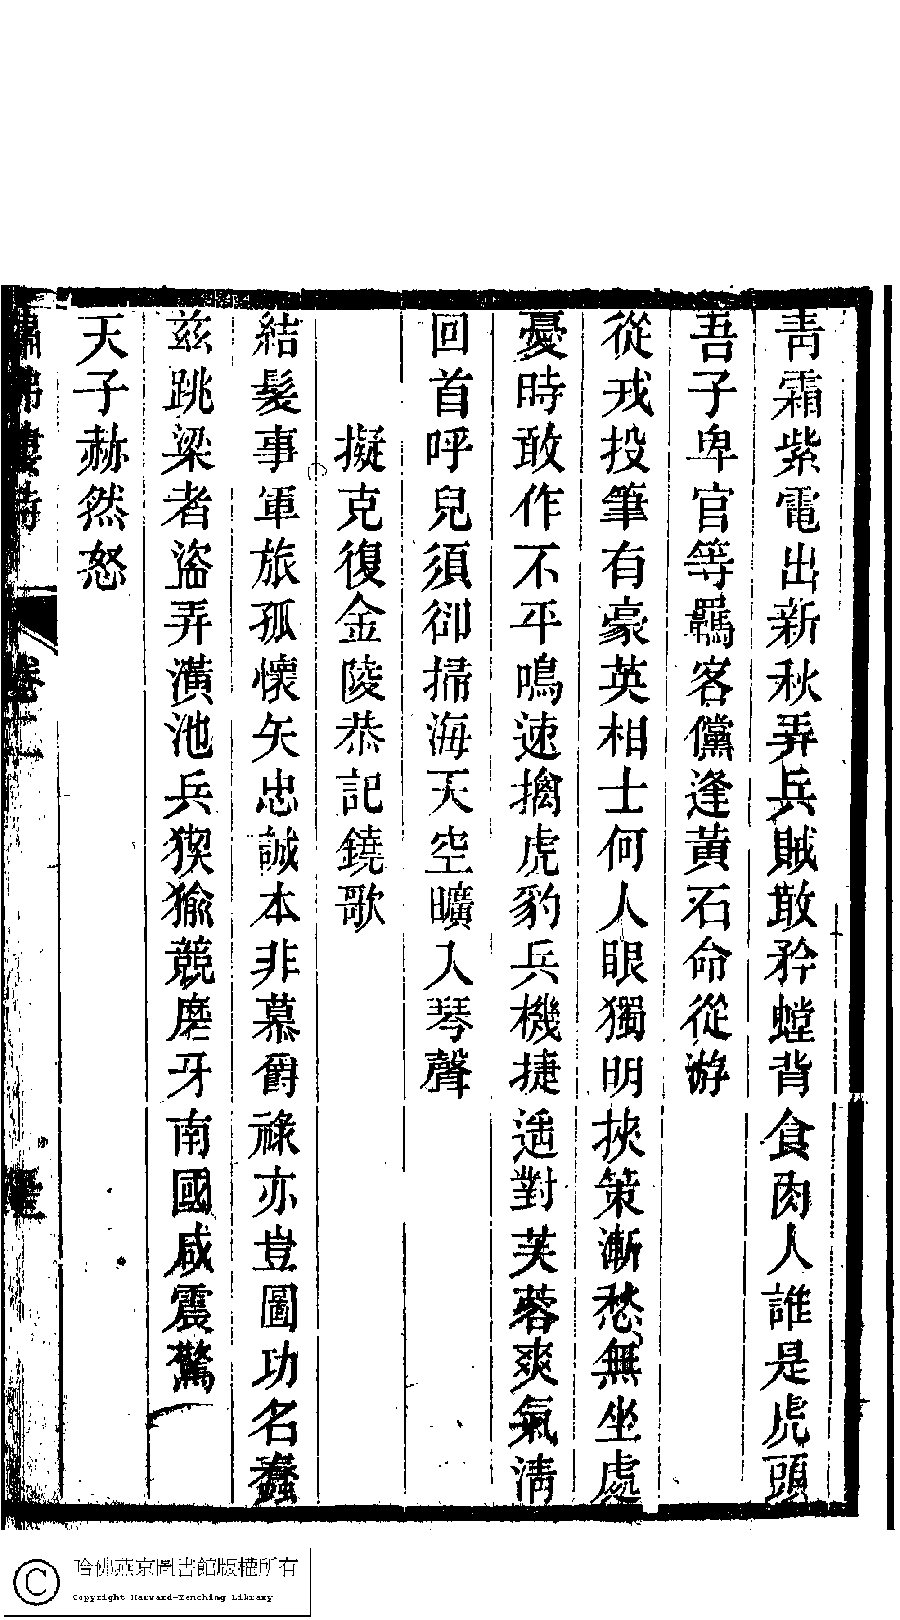 青霜紫電出新秋弄兵賊敢矜螳背食肉人誰是虎頭
吾子卑官等羈客儻逢黃石命從游
從戎投筆有豪英相士何人眼獨明挾策漸愁無坐處
憂時敢作不平鳴速擒虎豹兵機捷遥對芙蓉爽氣淸
回首呼兒須卻掃海天空曠入琴聲
擬克復金陵恭記鐃歌
結髮事軍旅孤懷矢忠誠本非慕爵祿亦豈圖功名蠢
兹跳梁者盗弄潢池兵猰㺄競磨牙南國咸震驚
天子赫然怒
樓詩
卷二
哈佛燕京圖書館版權所有
Copyright Harvard-Yenching Library